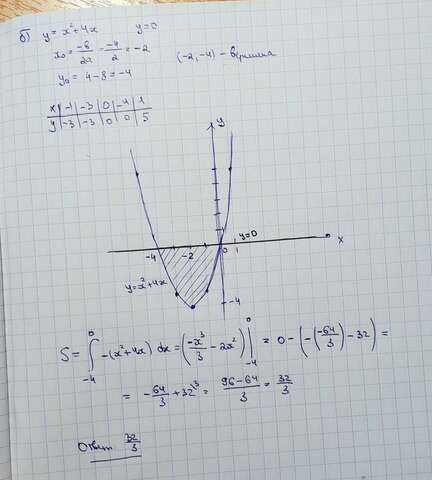 б) y = x² + 4x   y = 0
x₀ = -b/2a = -4/2 = -2
(-2, -4) - вершина
y₀ = 4 - 8 = -4
x | -1 | -3 | 0 | -4 | 1
y | -3 | -3 | 0 | 0 | 5
y
y=0
-4 -2 0 1 x
y = x² + 4x
-4
S = ∫₋₄⁰ -(x² + 4x) dx = (-x³/3 - 2x²) |₋₄⁰ = 0 - (-(-64/3) - 32) =
= -64/3 + 32^3 = (96 - 64)/3 = 32/3
Ответ: 32/3